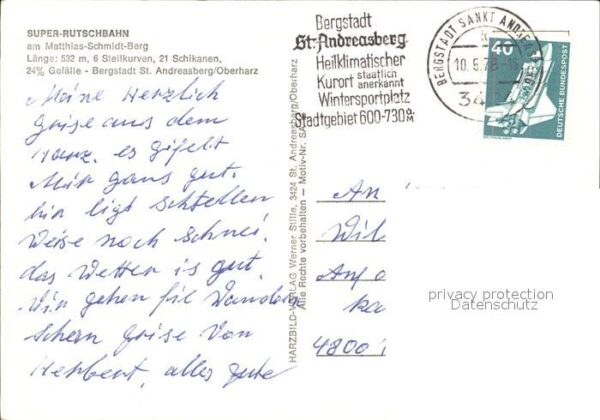 SUPER-RUTSCHBAHN
am Matthias-Schmidt-Berg
Länge: 532 m, 6 Steilkurven, 21 Schikanen,
24% Gefälle - Bergstadt St. Andreasberg/Oberharz
Meine Herzlich
grise aus dem
Harz. es gifelt
Mir gans gut.
hir ligt Schtellen
Weise noch Schnei.
das Wetter is gut.
Wir gehen fil Wandern
Schern grise Von
Herbert, alles gute
HARZBILD-VERLAG Werner Stille, 3424 St. Andreasberg/Oberharz
Alle Rechte vorbehalten - Motiv-Nr. SA
Bergstadt
St. Andreasberg
Heilklimatischer
Kurort staatlich anerkannt
Wintersportplatz
Stadtgebiet 600-730
BERGSTADT SANKT
10.5.78-16
40
DEUTSCHE BUNDESPOST
An
Wil
4800
privacy protection
Datenschutz